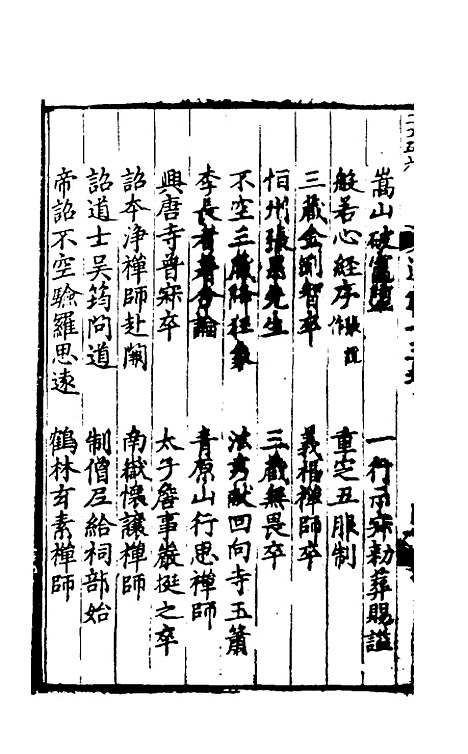 嵩山破竈墮 一行示寂勑葬賜謚
般若心經序 張說作 重定五服制
三藏金剛智卒 義福禪師卒
恒州張果先生 三藏無畏卒
不空三藏 法秀獻回向寺玉簫
李長者著合論 青原山行思禪師
興唐寺普寂卒 太子詹事嚴挺之卒
詔本淨禪師赴闕 南嶽懷讓禪師
詔道士吳筠問道 制僧尼給祠部始
帝詔不空驗羅思遠 鶴林玄素禪師